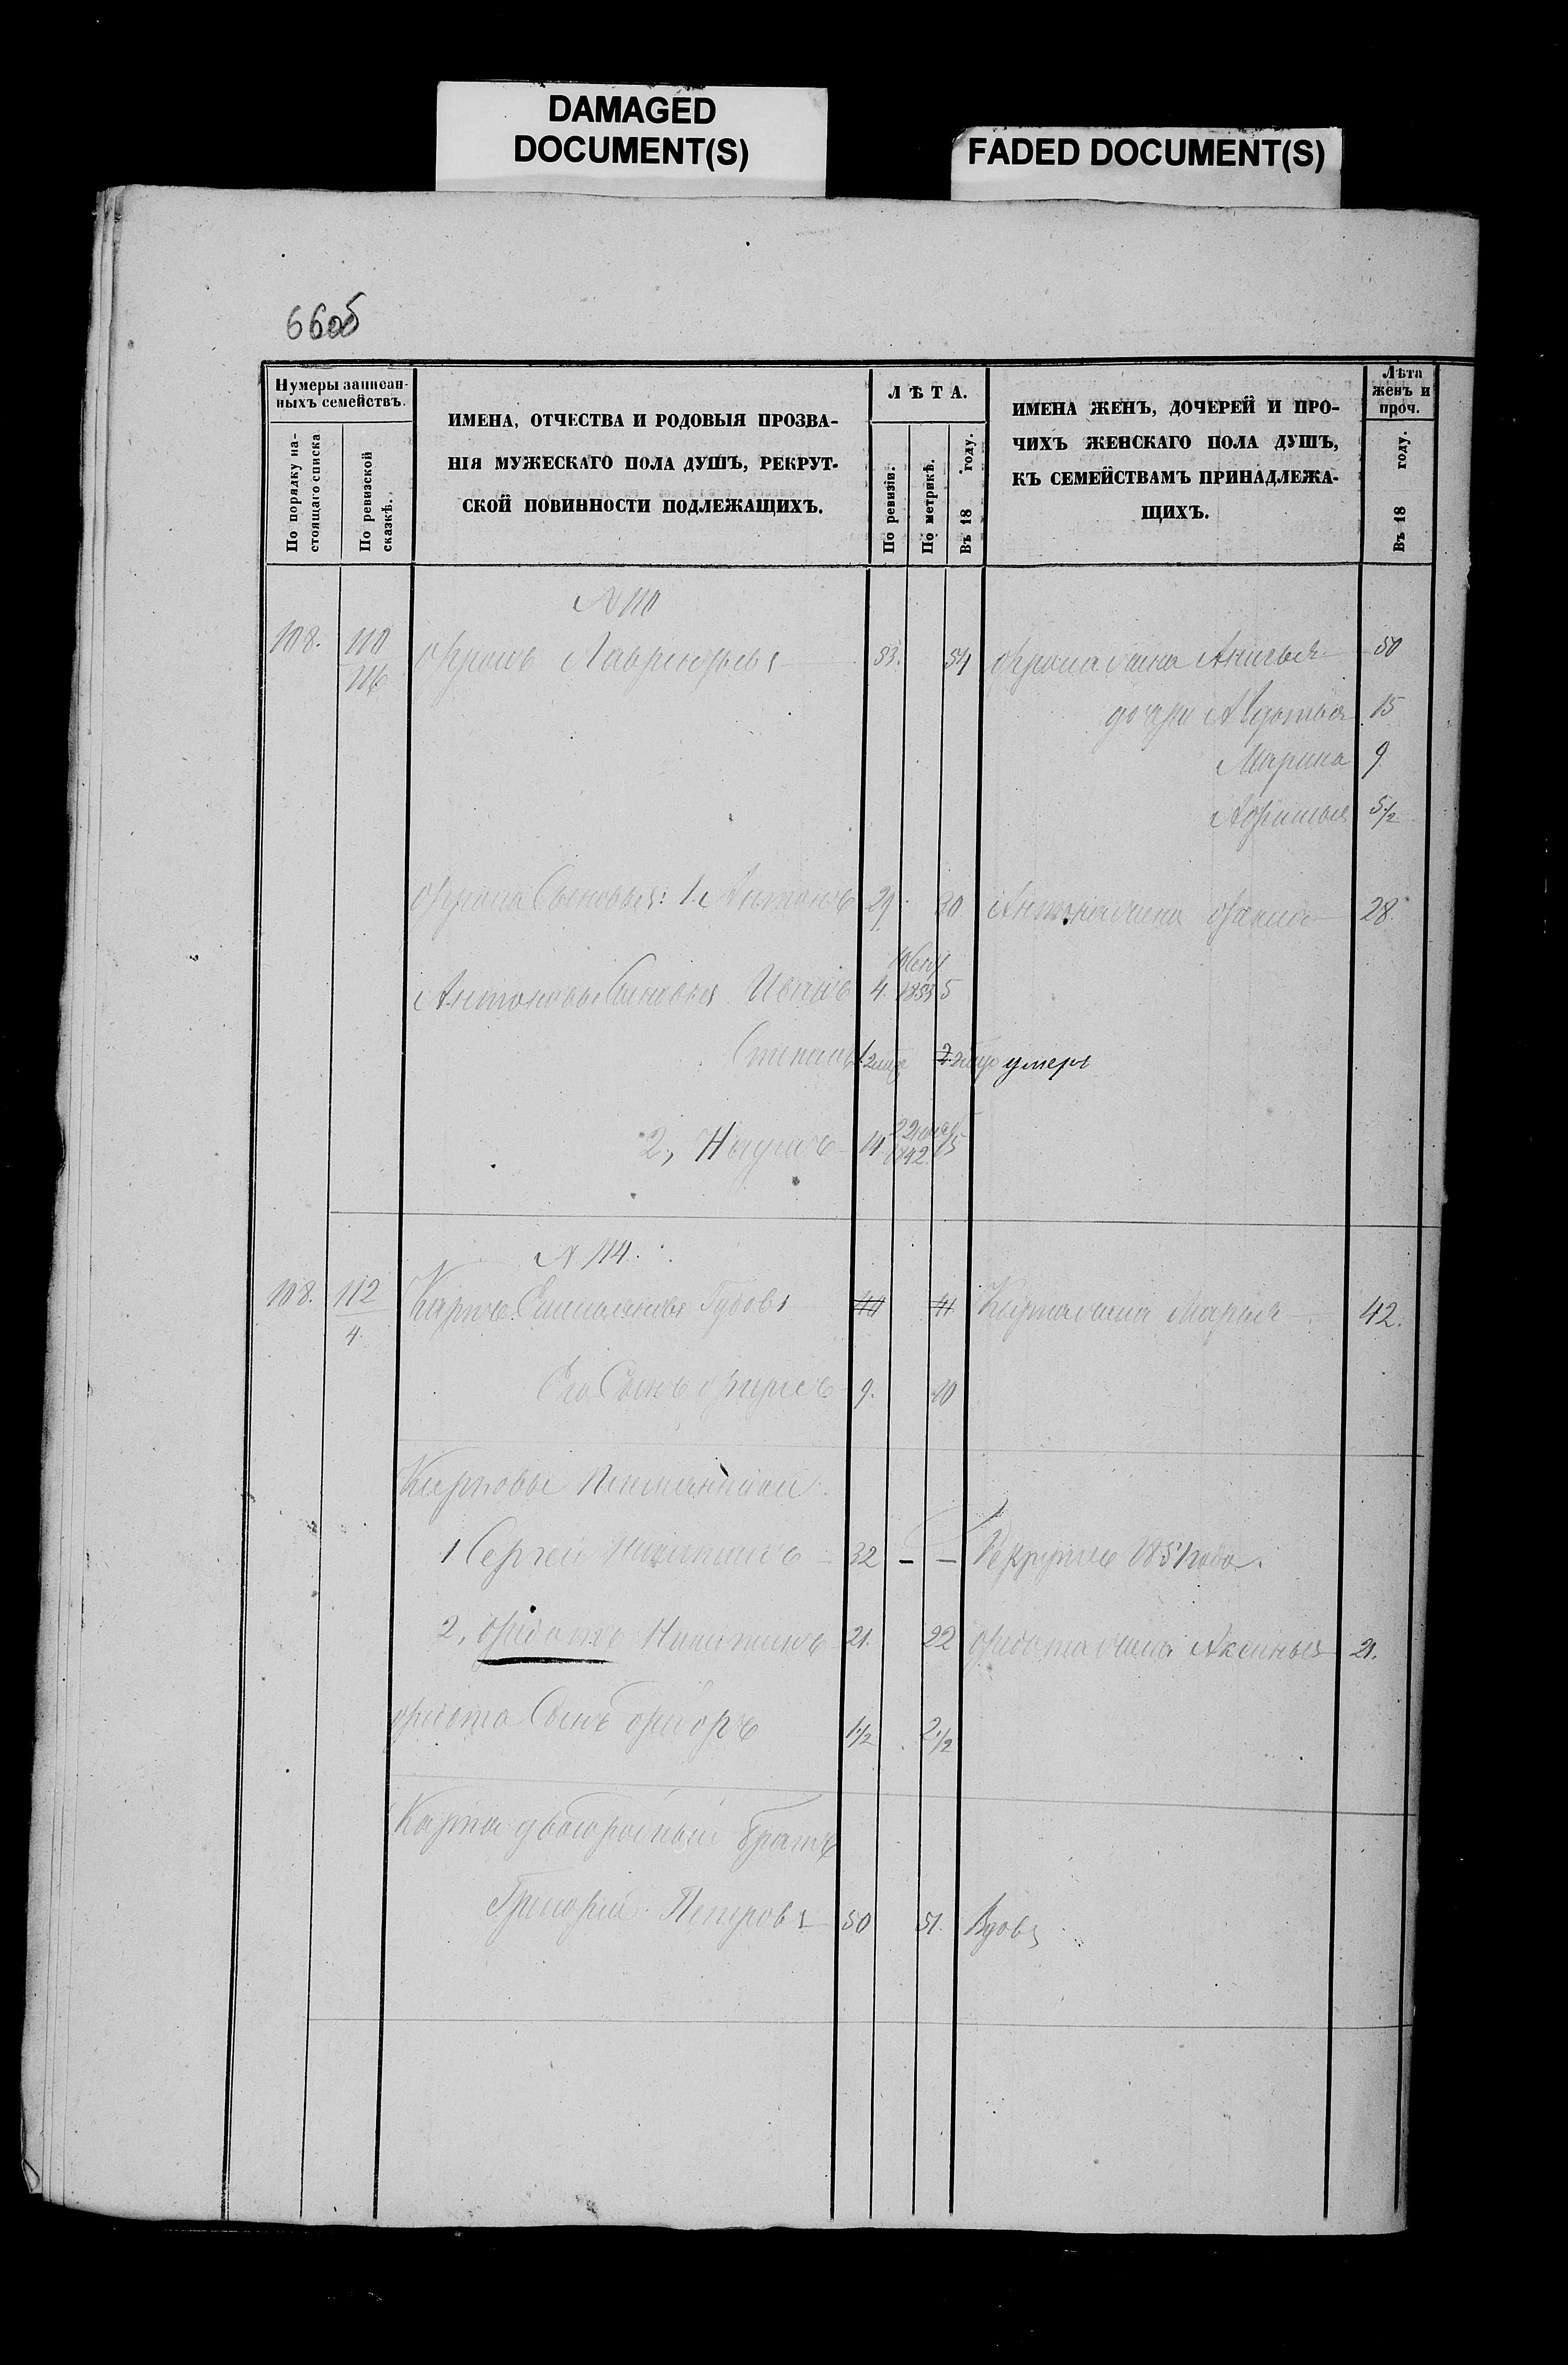 DAMAGED
DOCUMENT(S)
FADED DOCUMENT(S)
66об
Нумеры записан-
ныхъ семействъ.
По порядку на-
стоящаго списка
По ревизской
сказкѣ.
ИМЕНА, ОТЧЕСТВА И РОДОВЫЯ ПРОЗВА-
НІЯ МУЖЕСКАГО ПОЛА ДУШЪ, РЕКРУТ-
СКОЙ ПОВИННОСТИ ПОДЛЕЖАЩИХЪ.
ЛѢТА.
По ревизіи.
По метрикѣ.
Въ 18 году.
ИМЕНА ЖЕНЪ, ДОЧЕРЕЙ И ПРО-
ЧИХЪ ЖЕНСКАГО ПОЛА ДУШЪ,
КЪ СЕМЕЙСТВАМЪ ПРИНАДЛЕЖА-
ЩИХЪ.
Лѣта
женъ и
проч.
Въ 18 году.
N 110
108. 110 Фролъ Лаврентьевъ 53. 54 Фрола жена Анисья 50
116
дочери Авдотья 15
Марина 9
5 1/2
Фрола Сыновья: 1. Антонъ 29. 30 Антона жена 28.
Антоновы Сыновья Иванъ 4. 1853 5
Степанъ умеръ
2, Наумъ 14 22 1842. 15
N 114.
108. 112 Карпъ Емельяновъ Губовъ 40 41 Карпа жена Марья 42.
4.
Его Сынъ Фирсъ 9. 10
Карповы Племянники
1 Сергей Никитинъ 32 — — Рекрутъ 1851 года.
2, Федотъ Никитинъ 21. 22 Федота жена Аксинья 21.
Федота Сынъ 1 1/2 2 1/2
Карпа двоюродный братъ
Григорий Петровъ 50 51. Вдовъ